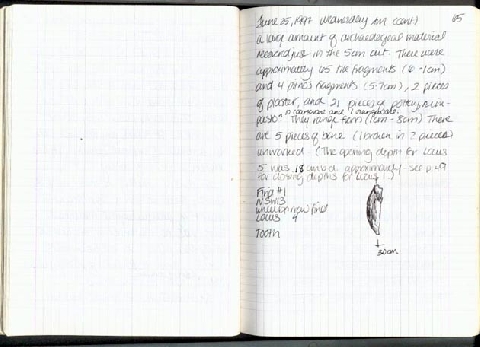 June 25, 1997 Wednesday am (cont.) 65
a large amount of archaeological material
recorded just in the 5cm cut. There were
approximately 65 tile fragments (10-1cm)
and 4 fragments (5-7cm), 2 pieces
of plaster, and 21 pieces of pottery,
They range from (1cm-8cm) There
are 5 pieces of bone (1 broken in 2 pieces)
unworked. (The opening depth for Locus
5 was approximately see p.49
for closing depths for Locus
Find #1
new find
Locus 4
Tooth
3.0cm